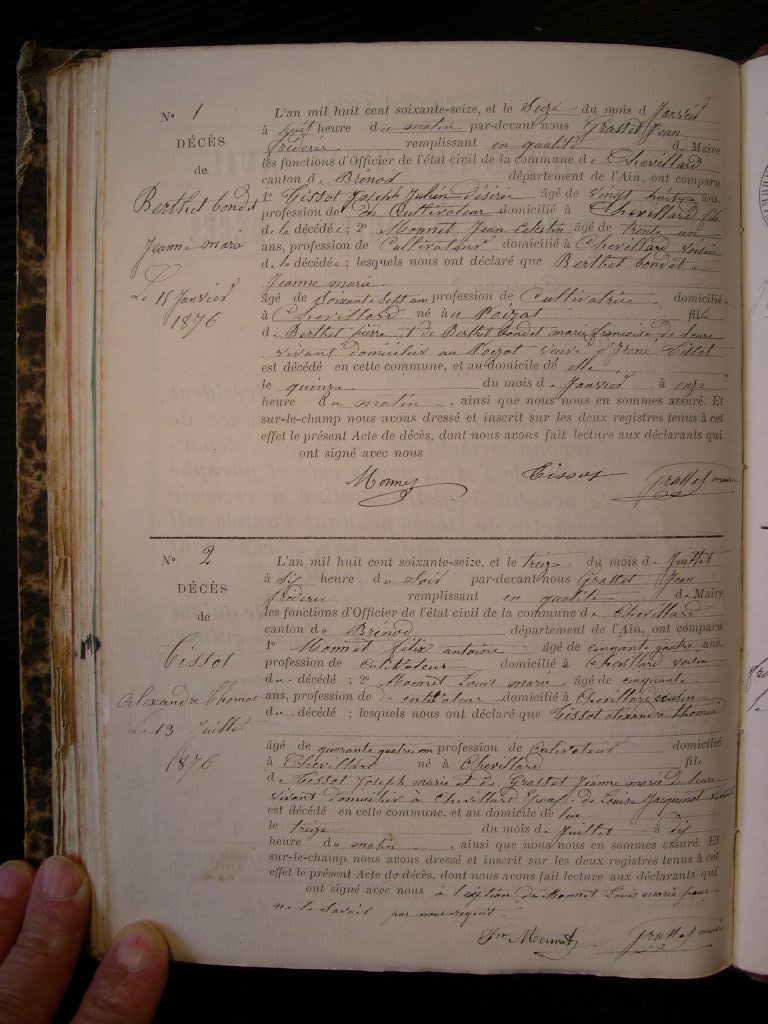 N° 1
DÉCÈS
de
Berthet bondet
Jeanne marie
Le 15 Janvier
1876
L'an mil huit cent soixante-seize, et le Seize du mois d Janvier
à huit heure du matin par-devant nous Grasset Jean
fréderic remplissant en qualité de Maire
les fonctions d'Officier de l'état civil de la commune de Chevillard
canton de Brénod département de l'Ain, ont comparu
1° Tissot Joseph Julien désirée âgé de vingt huit ans,
profession de Cultivateur domicilié à Chevillard fils
de la décédée; 2° Monnet Jean Celestin âgé de trente un
ans, profession de Cultivateur domicilié à Chevillard voisin
de la décédée; lesquels nous ont déclaré que Berthet bondet
Jeanne marie
âgé de soixante sept ans profession de Cultivatrice domicilié
à Chevillard né à u Poizat fil
de Berthet pierre et de Berthet bondet marie françoise de leure
vivant domicilier au Poizat veuve d'Irené Tissot
est décédé en cette commune, et au domicile de elle
le quinze du mois de Janvier à onze
heure du matin, ainsi que nous nous en sommes assuré. Et
sur-le-champ nous avons dressé et inscrit sur les deux registres tenus à cet
effet le présent Acte de décès, dont nous avons fait lecture aux déclarants qui
ont signé avec nous
Monnet Tissot Grasset maire
N° 2
DÉCÈS
de
Tissot
Alexandre thomas
Le 13 Juillet
1876
L'an mil huit cent soixante-seize, et le treize du mois de Juillet
à six heure du Soir par-devant nous Grasset Jean
fréderic remplissant en qualité de Maire
les fonctions d'Officier de l'état civil de la commune de Chevillard
canton de Brénod département de l'Ain, ont comparu
1° Monnet félix antoine âgé de cinquante quatre ans,
profession de Cultivateur domicilié à Chevillard voisin
du décédé; 2° Monnet Louis marie âgé de cinquante
ans, profession de cultivateur domicilié à Chevillard cousin
du décédé; lesquels nous ont déclaré que Tissot alexandre thomas
âgé de quarante quatre ans profession de Cultivateur domicilié
à Chevillard né à Chevillard fils
de Tissot Joseph marie et de Grasset Jeanne marie de leure
vivant domicilier à Chevillard Epoux de Louise Jacquinot
est décédé en cette commune, et au domicile de lui
le treize du mois de Juillet à dix
heure du matin, ainsi que nous nous en sommes assuré. Et
sur-le-champ nous avons dressé et inscrit sur les deux registres tenus à cet
effet le présent Acte de décès, dont nous avons fait lecture aux déclarants qui
ont signé avec nous à l'exeption de Monnet Louis marie pour
ne le Savoir par nous requit.
Monnet Grasset maire